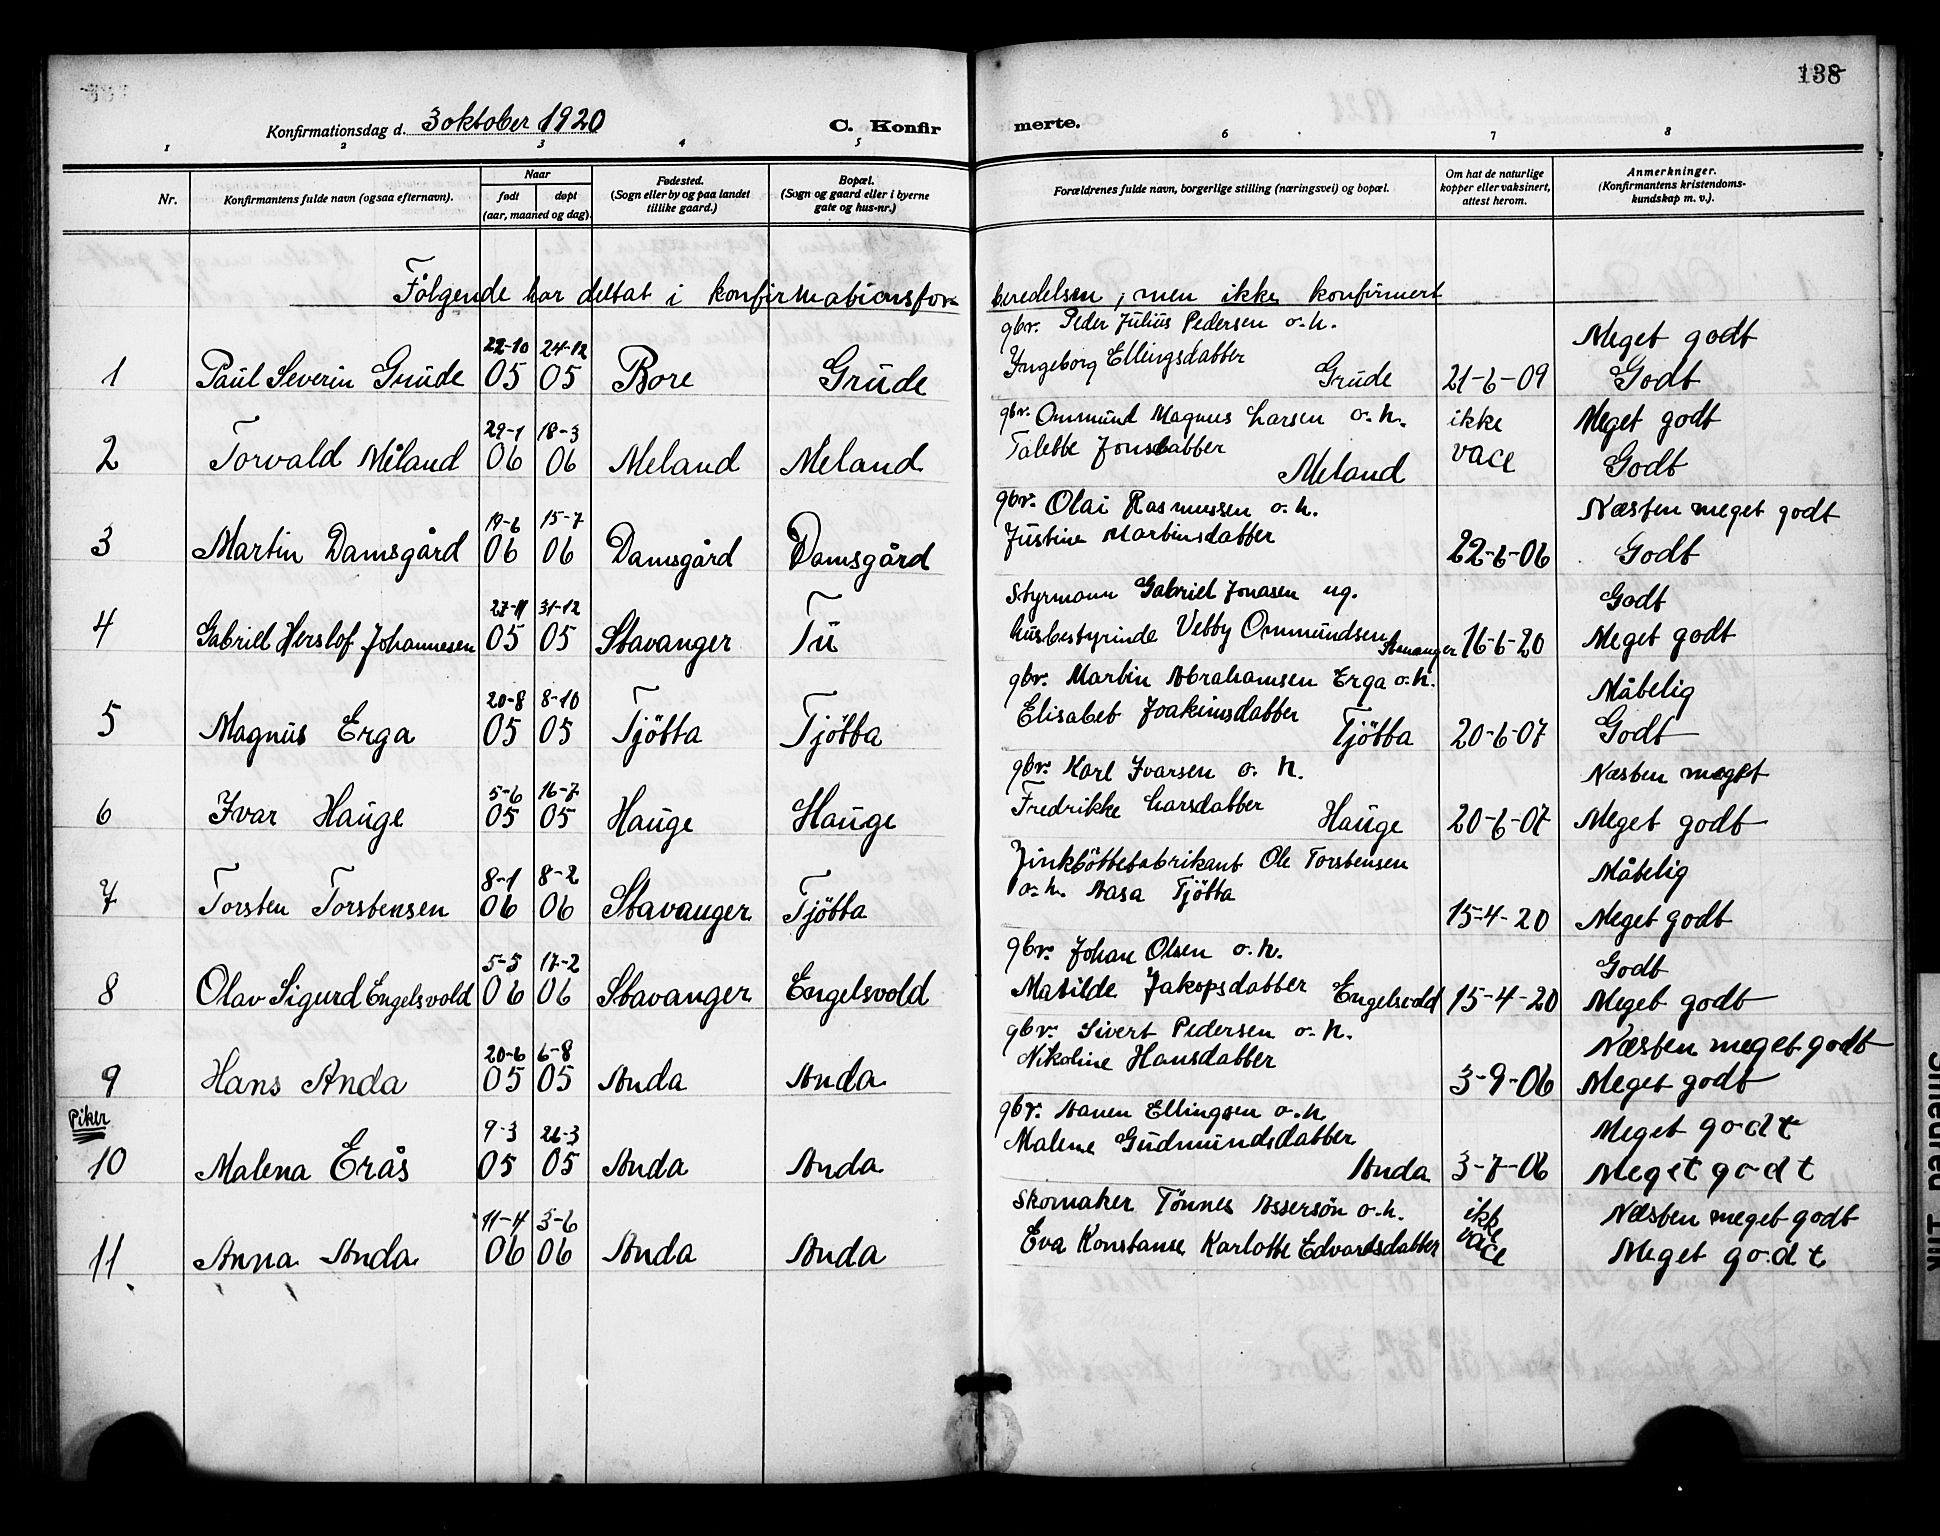 138
Konfirmationsdag d. 3 oktober 1920 C. Konfirmerte.
1 2 3 4 5 6 7 8
Nr. Konfirmantens fulde navn (ogsaa efternavn). Naar født døpt (aar, maaned og dag). Fødested. (Sogn eller by og paa landet tillike gaard.) Bopæl. (Sogn og gaard eller i byerne gate og hus-nr.) Forældrenes fulde navn, borgerlige stilling (næringsvei) og bopæl. Om hat de naturlige kopper eller vaksinert, attest herom. Anmerkninger. (Konfirmantens kristendoms-kundskap m. v.).
Følgende har deltat i konfirmationsforberedelsen, men ikke konfirmert
gbr. Peder Julius Pedersen o. h.
22-10 24-12 Ingeborg Ellingsdatter Meget godt
1 Paul Severin Grude 05 05 Bore Grude Grude 21-6-09 Godt
gbr. Ommund Magnus Larsen o. h. ikke Meget godt
29-1 18-3 Talette Jonsdatter vacc
2 Torvald Måland 06 06 Meland Meland Meland Godt
gbr. Olai Rasmussen o. h. Næsten meget godt
19-6 15-7 Justine Martinsdatter
3 Martin Damsgård 06 06 Damsgård Damsgård 22-6-06 Godt
27-11 31-12 Styrmann Gabriel Jonasen ug. Godt
4 Gabriel Herslof Johannesen 05 05 Stavanger Tu husbestyrinde Vetby Ommundsen Stavanger 16-6-20 Meget godt
gbr. Martin Abrahamsen Erga o. h. Måtelig
20-8 8-10 Elisabet Joakimsdatter
5 Magnus Erga 05 05 Tjøtta Tjøtta Tjøtta 20-6-07 Godt
gbr. Karl Ivarsen o. h. Næsten meget
5-6 16-7 Fredrikke Larsdatter
6 Ivar Hauge 05 05 Hauge Hauge Hauge 20-6-07 Meget godt
Zinkbøttefabrikant Ole Torstensen Måtelig
8-1 8-2 o. h. Aasa Tjøtta
7 Torsten Torstensen 06 06 Stavanger Tjøtta 15-4-20 Meget godt
gbr. Johan Olsen o. h. Godt
5-5 17-2
8 Olav Sigurd Engelsvold 06 06 Stavanger Engelsvold Matilde Jakopsdatter Engelsvold 15-4-20 Meget godt
gbr. Sivert Pedersen o. h. Næsten meget godt
20-6 6-8 Nikoline Hansdatter
9 Hans Anda 05 05 Anda Anda 3-9-06 Meget godt
Piker
gbr. Aanen Ellingsen o. h. Meget godt
9-3 26-3 Malene Gudmundsdatter
10 Malena Erås 05 05 Anda Anda Anda 3-7-06 Meget godt
11-4 3-6 Skomaker Tønnes Assersøn o. h. ikke Næsten meget godt
11 Anna Anda 06 06 Anda Anda Eva Konstanse Karlotte Edvardsdatter vacc Meget godt